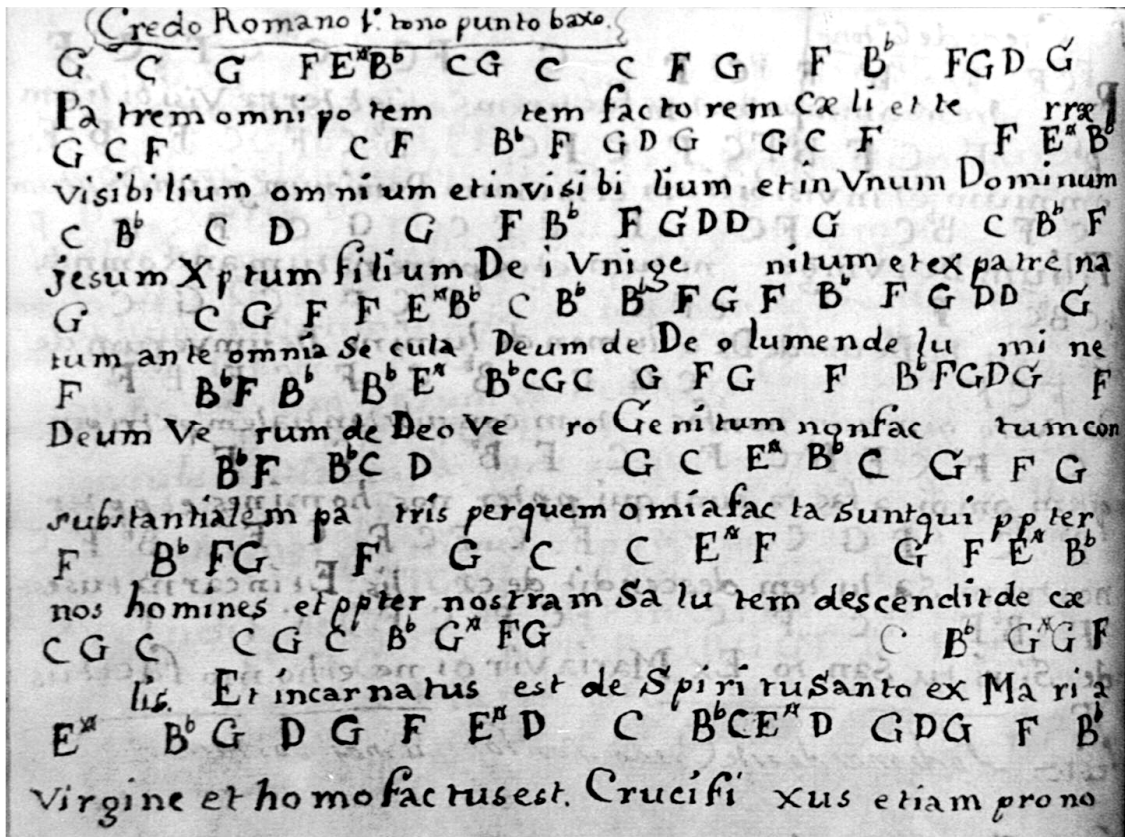 Credo Romano 1º tono punto baxo.
G C G F E♯ B♭ C G C C F G F B♭ F G D G
Pa trem omni po tem tem facto rem Cæ li et te rræ
G C F C F B♭ F G D G G C F F E♯ B♭
visibilium omnium et invisi bi lium et in Vnum Dominum
C B♭ C D G F B♭ F G D D G C B♭ F
jesum Xptum filium De i Vnige nitum et ex patre na
G C G F F E♯ B♭ C B♭ B♭ F G F B♭ F G D D G
tum ante omnia Se cula Deum de De o lumen de lu mi ne
F B♭ F B♭ B♭ E♯ B♭ C G C G F G F B♭ F G D G F
Deum Ve rum de Deo Ve ro Genitum non fac tum con
B♭ F B♭ C D G C E♯ B♭ C G F G
substantialem pa tris per quem omia fac ta Sunt qui ppter
F B♭ F G F G C C E♯ F G F E♯ B♭
nos homines et ppter nostram Sa lu tem descendit de cæ
C G C C G C B♭ G♯ F G C B♭ G♯ G F
lis. Et incarnatus est de Spiri tu Santo ex Ma ri a
E♯ B♭ G D G F E♯ D C B♭ C E♯ D G D G F B♭
virgine et homo fac tus est. Crucifi xus etiam pro no